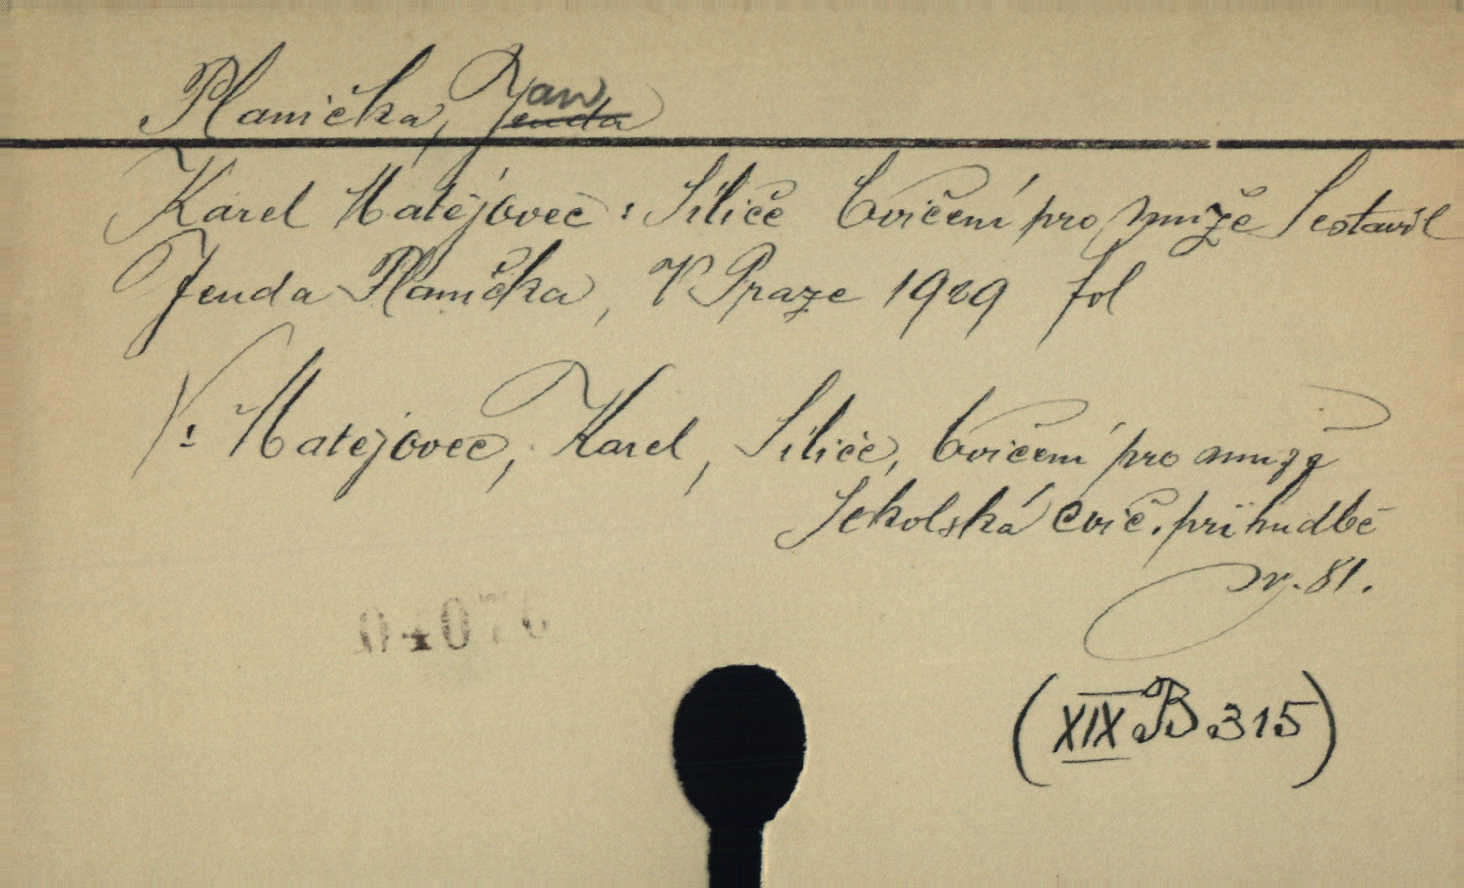 Planička, Jan
Karel Matějoveč: Siliče Cvičení pro muže Sestavil
Jenda Planička, V Praze 1929 fol
V: Matějoveč, Karel, Siliče, Cvičení pro muže
Sokolská cvič. při hudbě
sv. 81.
0407
(XIX B 315)